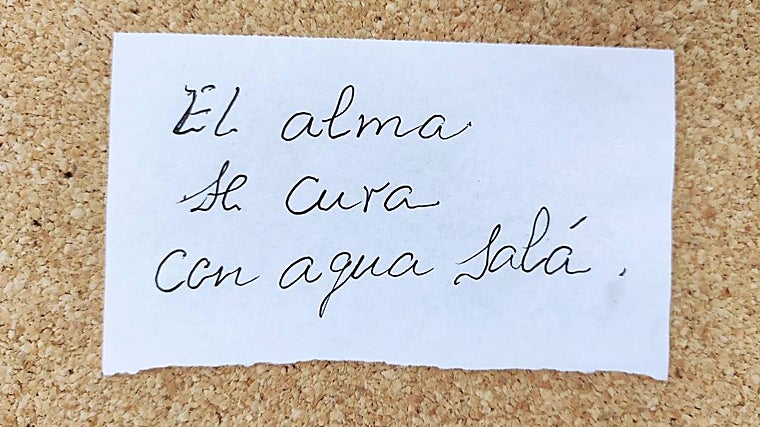 El alma
se cura
con agua salá.